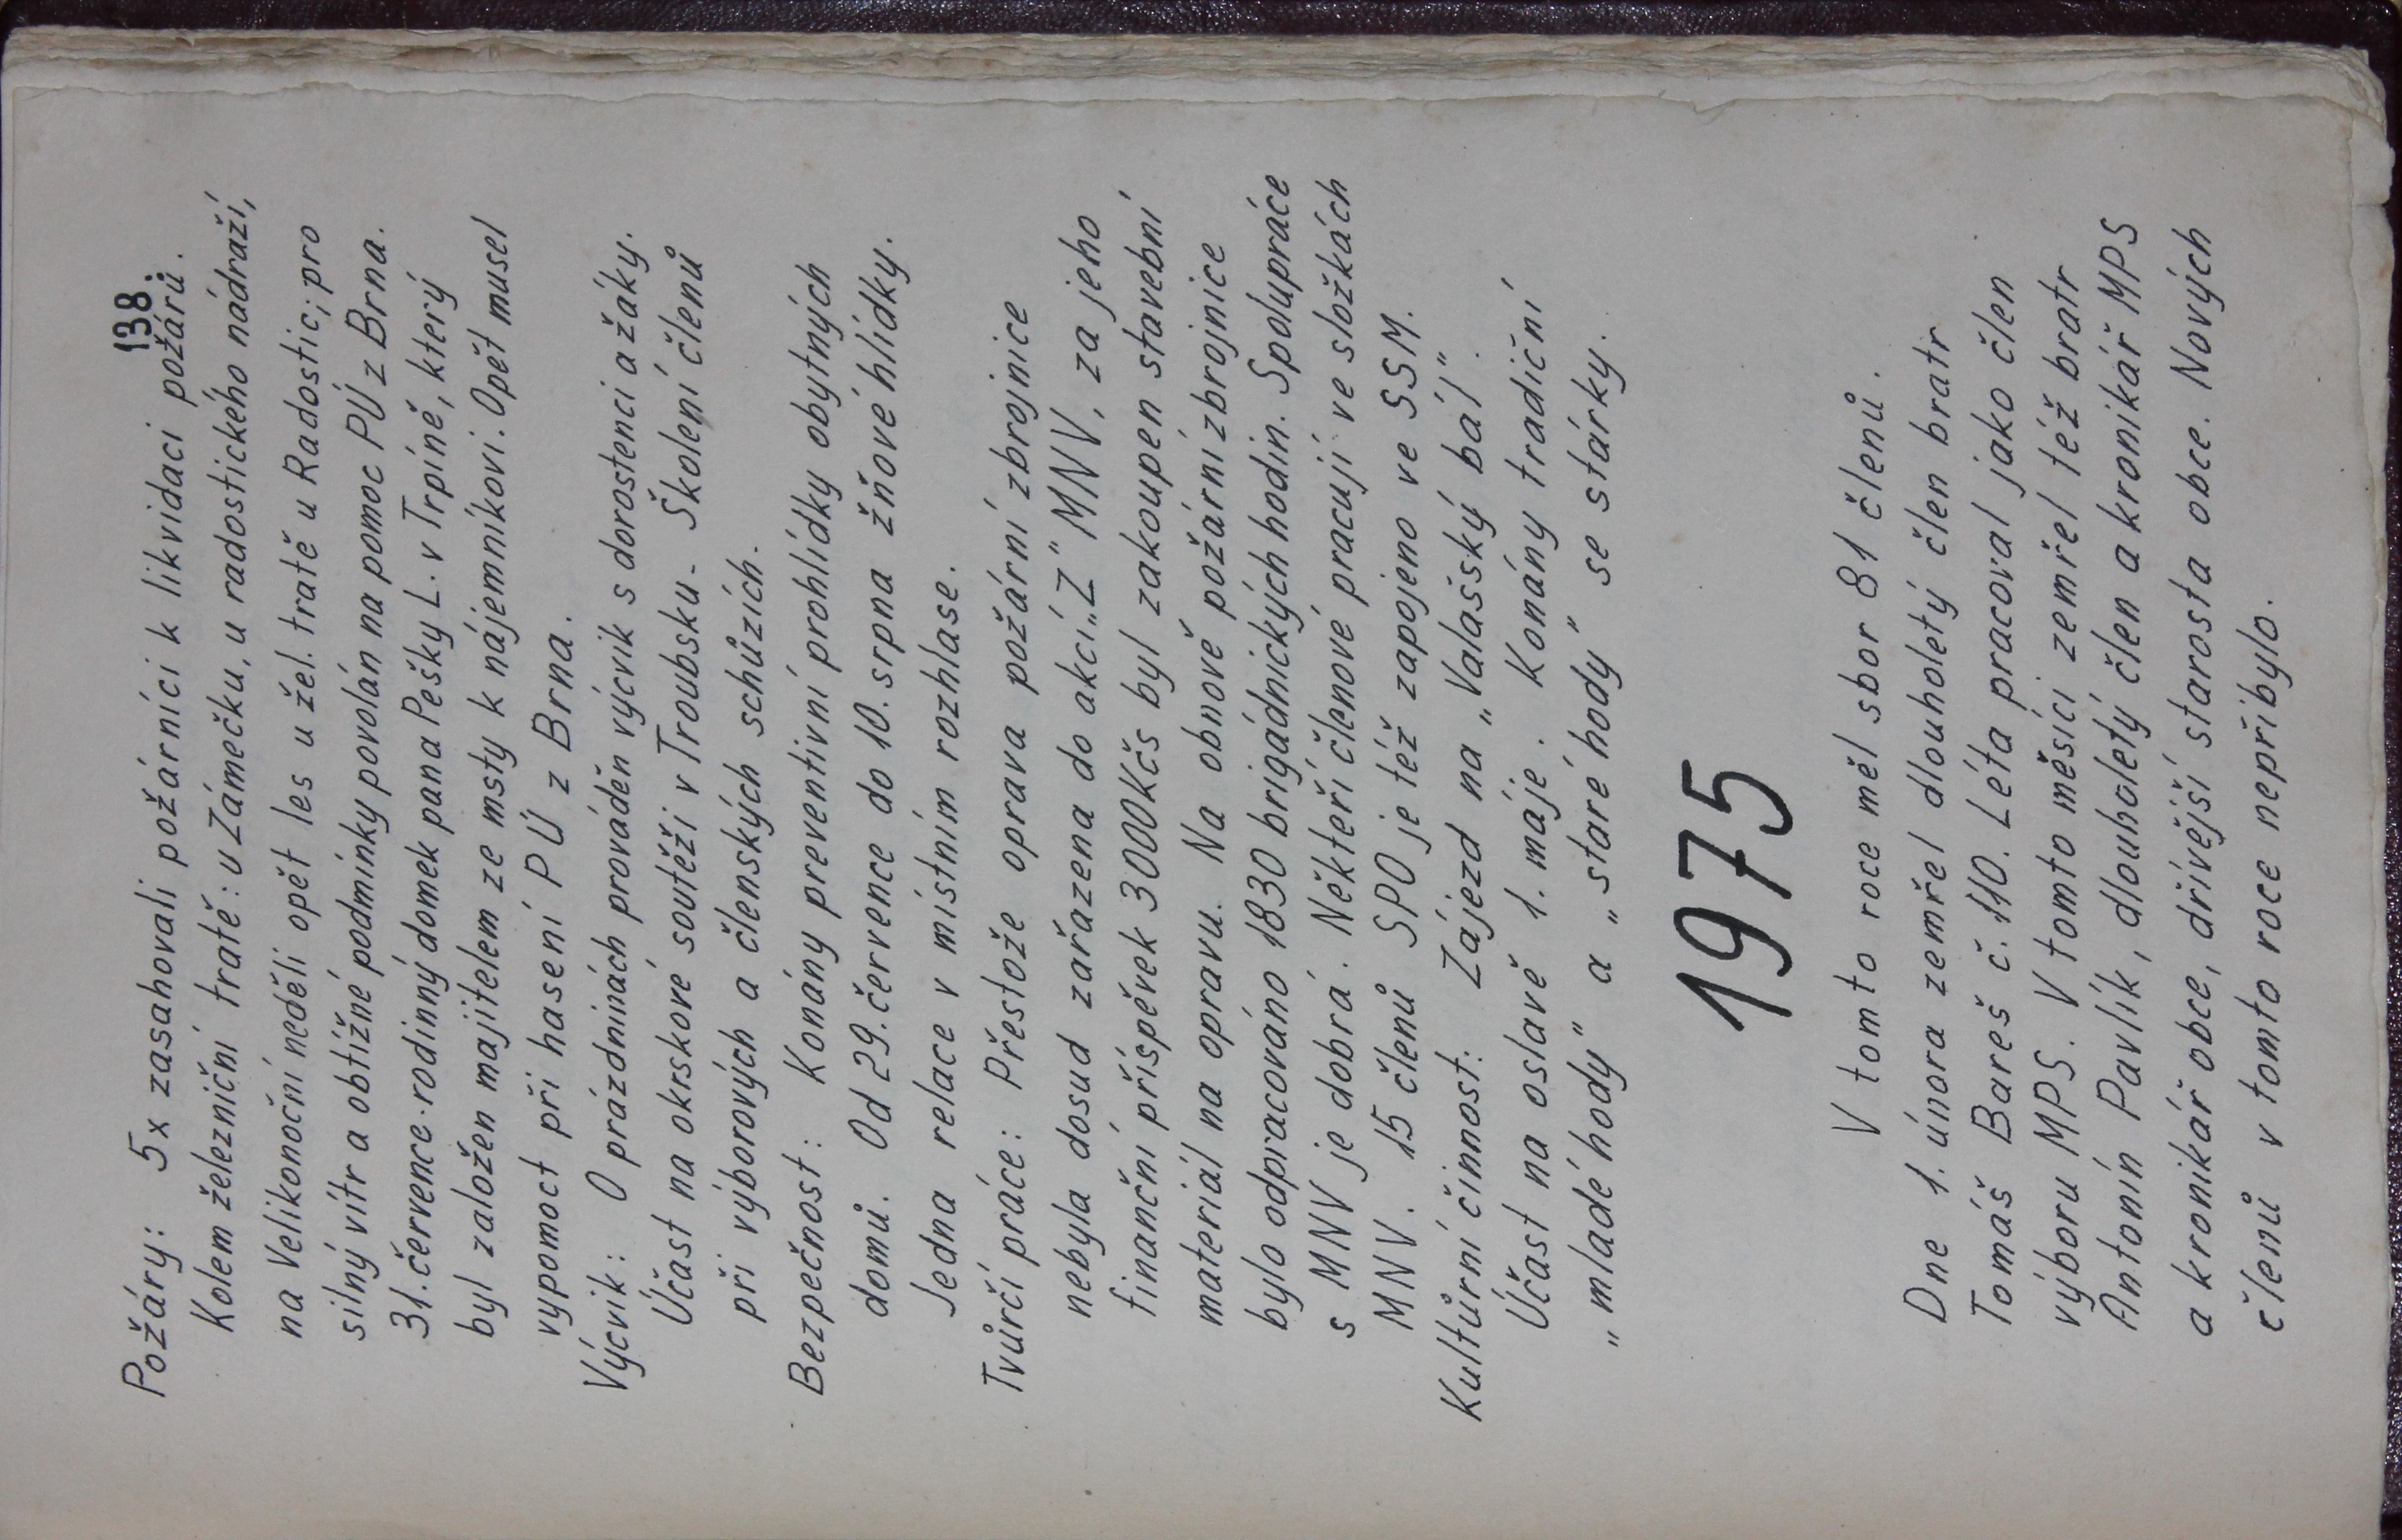 138.
Požáry: 5x zasahovali požárníci k likvidaci požárů.
Kolem železniční tratě: u Zámečku, u radostického nádraží,
na Velikonoční neděli opět les u žel. tratě u Radostic; pro
silný vítr a obtížné podmínky povolán na pomoc PÚ z Brna.
31. července rodinný domek pana Pešky L. v Trpíně, který
byl založen majitelem ze msty k nájemníkovi. Opět musel
vypomoct při hasení PÚ z Brna.
Výcvik: O prázdninách prováděn výcvik s dorostenci a žáky.
Účast na okrskové soutěži v Troubsku. Školení členů
při výborových a členských schůzích.
Bezpečnost: Konány preventivní prohlídky obytných
domů. Od 29. července do 10. srpna žňové hlídky.
Jedna relace v místním rozhlase.
Tvůrčí práce: Přestože oprava požární zbrojnice
nebyla dosud zařazena do akcí „Z" MNV, za jeho
finanční příspěvek 3000Kčs byl zakoupen stavební
materiál na opravu. Na obnově požární zbrojnice
bylo odpracováno 1830 brigádnických hodin. Spolupráce
s MNV je dobrá. Někteří členové pracují ve složkách
MNV. 15 členů SPO je též zapojeno ve SSM.
Kultůrní činnost: Zájezd na „Valašský bál".
Účast na oslavě 1. máje. Konány tradiční
„mladé hody" a „staré hody" se stárky.
1975
V tomto roce měl sbor 81 členů.
Dne 1. února zemřel dlouholetý člen bratr
Tomáš Bareš č. 110. Léta pracoval jako člen
výboru MPS. V tomto měsíci zemřel též bratr
Antonín Pavlík, dlouholetý člen a kronikář MPS
a kronikář obce, dřívější starosta obce. Nových
členů v tomto roce nepřibylo.